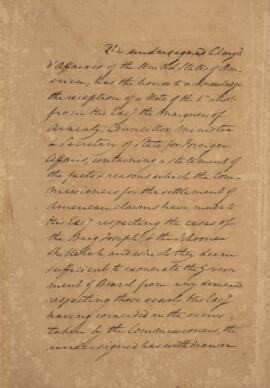 The undersigned Chargé
d'Affaires of the United States of Ame-
rica, has the honor to acknowledge
the reception of a Note of the 1st inst.
from His Exy. the Marquess of
Aracaty, Councillor Minister
& Secretary of State for Foreign
Affairs, containing a statement of
the facts & reasons which the Com-
missioners for the settlement of
American claims have made to
His Exy. respecting the cases of
the Brig Joseph & the Schooner
and which they deem
sufficient to exonerate the Govern-
ment of Brazil from any demand
respecting those vessels His Exy.
having coincided in the views
taken by the Commissioners, the
undersigned has withdrawn